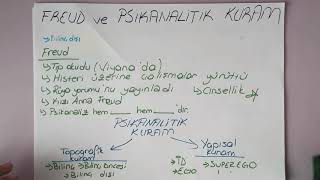 FREUD ve PSİKANALİTİK KURAM
→ Bilinç dışı
Freud
↓ Tıp okudu (Viyana'da)
↓ Histeri üzerine çalışmalar yürüttü
↓ Rüya yorumu'nu yayınladı
↓ Cinsellik
↓ Kızı Anna Freud
↓ Psikanaliz hem ___ hem ___'dir.
PSİKANALİTİK
KURAM
Topografik kuram
→ Bilinç → Bilinç öncesi
→ Bilinç dışı
Yapısal kuram
→ İD → SÜPEREGO
→ EGO